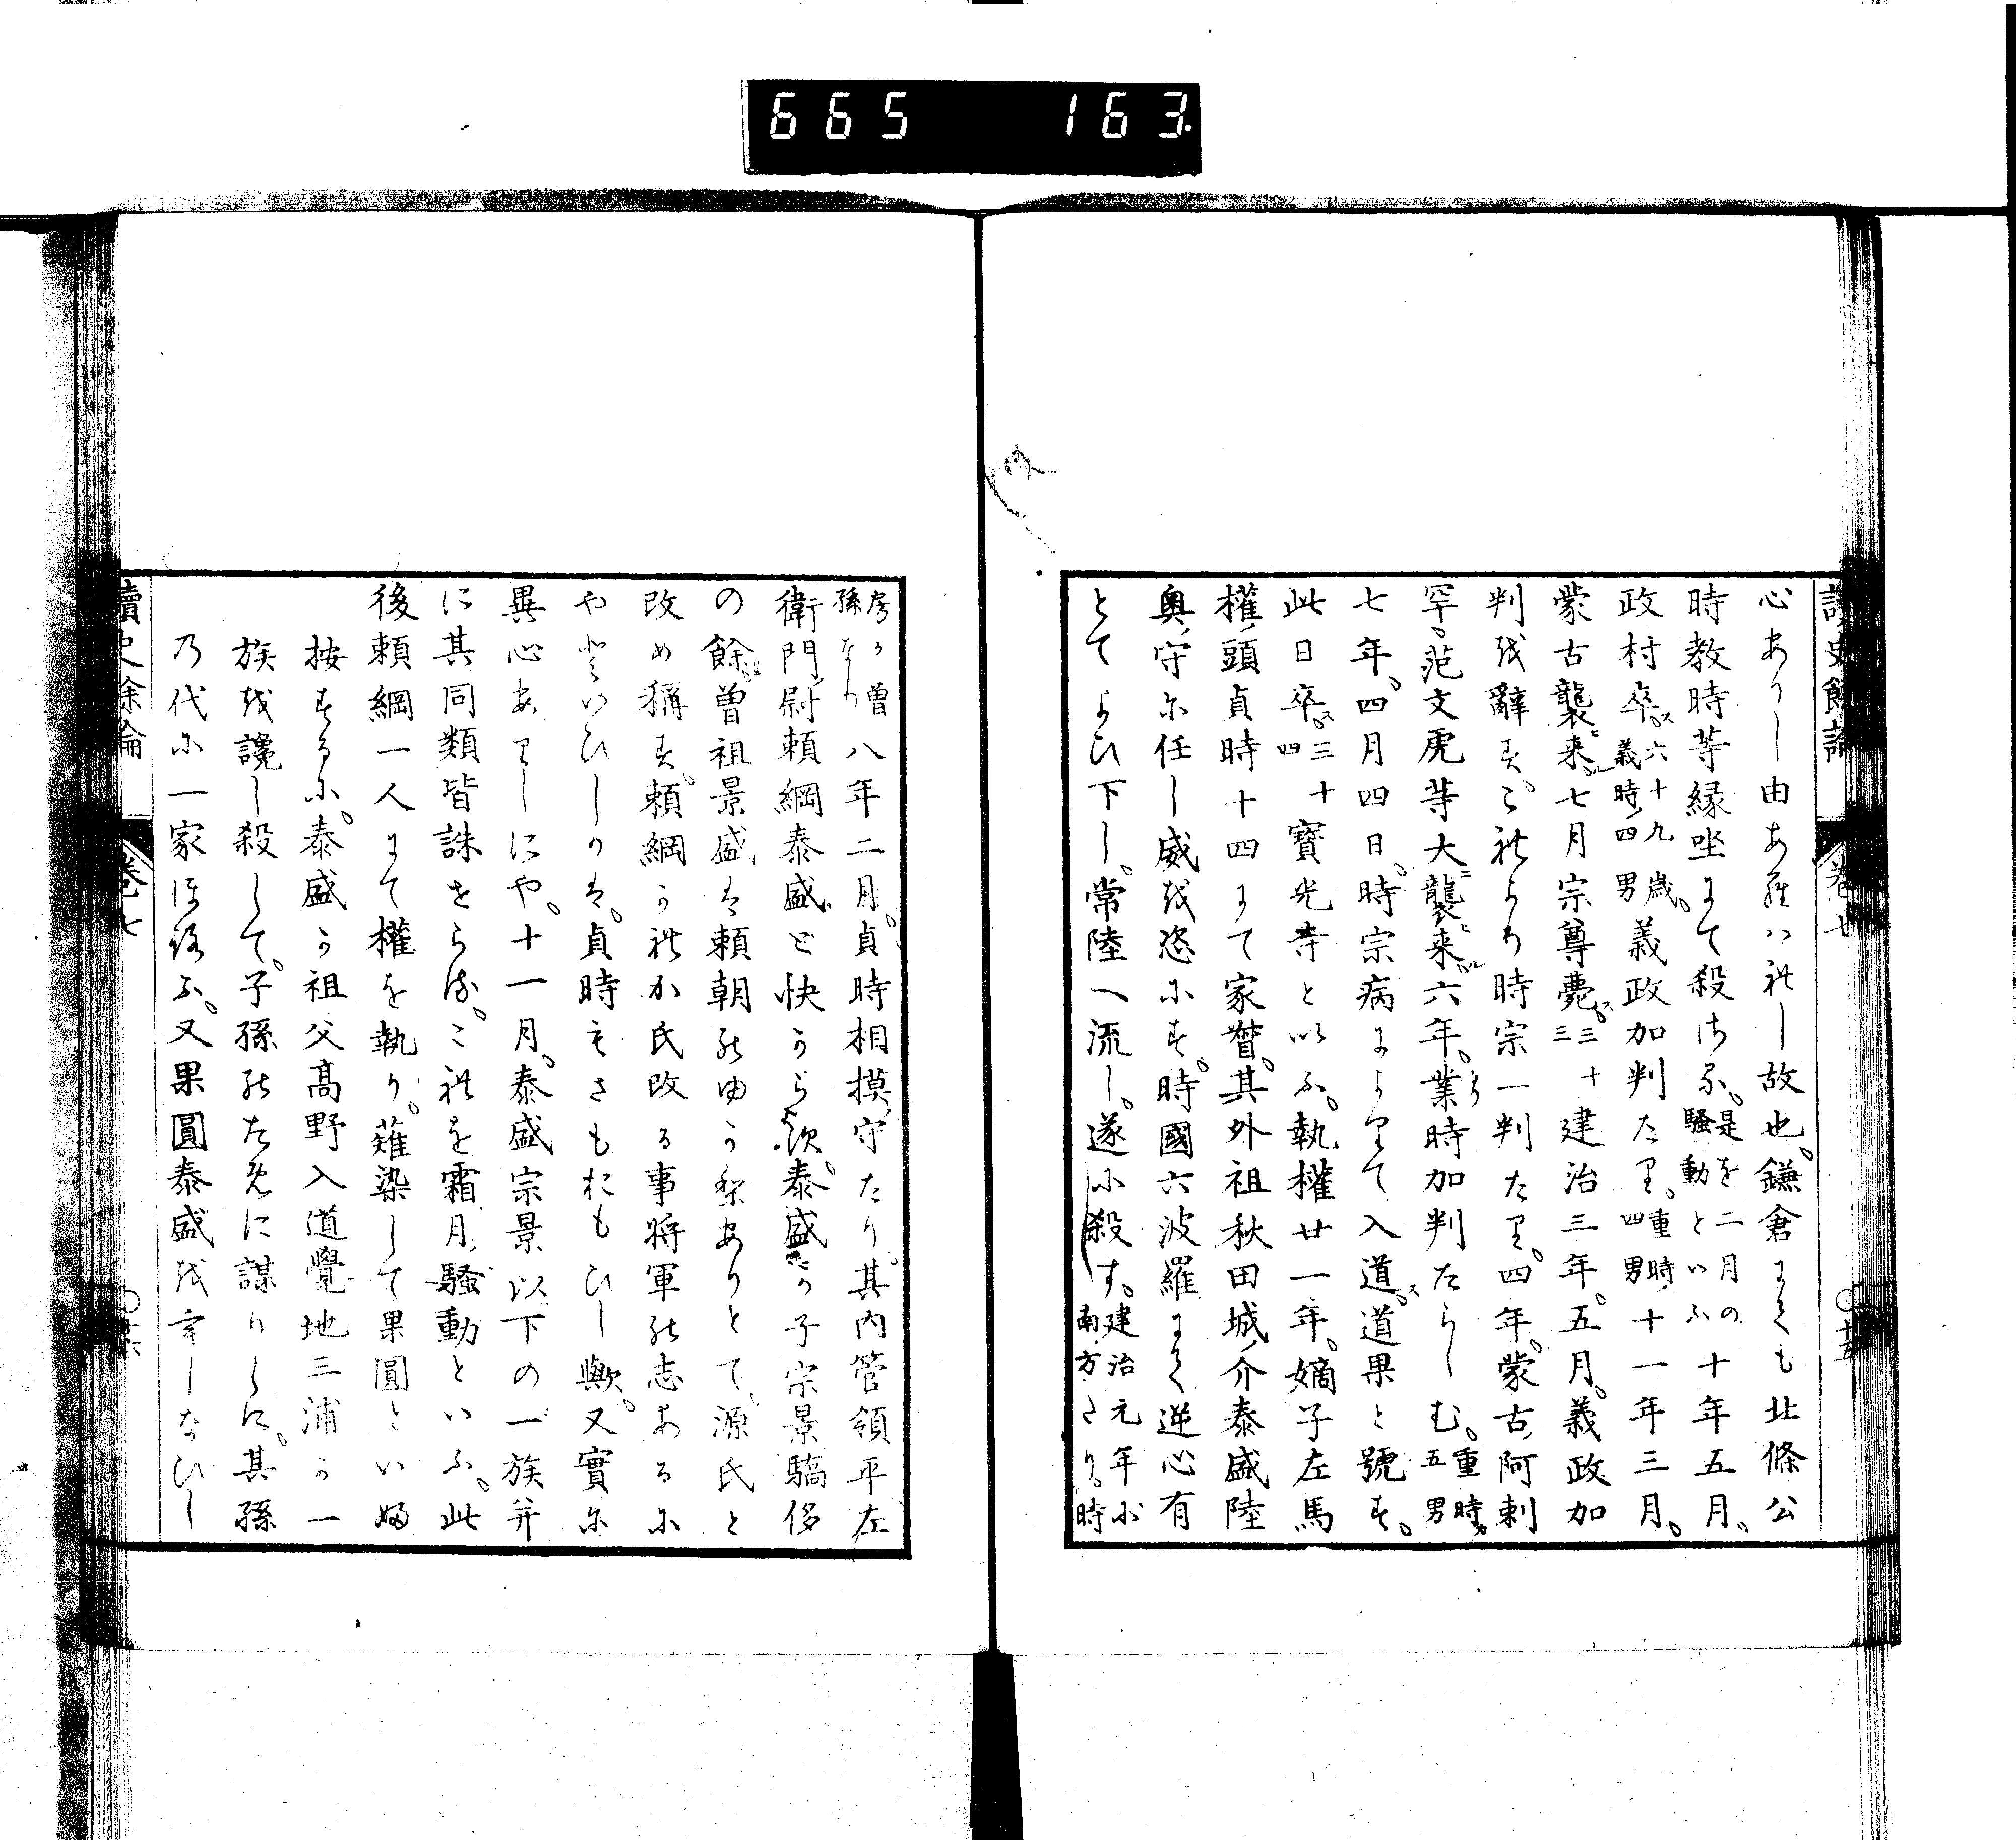 665 163
讀史餘論 卷七 ○十五
心ありし由あ雖ハれし故也。鎌倉にても北條公
時教時等縁坐にて殺さる。是を二月の騒動といふ十年五月。
政村卒ス。六十九歳。義時ノ四男義政加判たり。重時ノ四男十一年三月。
蒙古襲来ル。七月宗尊薨ス。三十三建治三年。五月。義政加
判を辭す。これより時宗一判たり。四年。蒙古ノ阿剌
罕。范文虎等大ニ襲来ル。六年。業時加判たらしむ。重時。五男
七年。四月四日。時宗病によりて入道ス。道果と號す。
此日卒ス。三十四寳光寺といふ。執權廿一年。嫡子左馬
權ノ頭貞時十四にて家督。其外祖秋田城ノ介泰盛陸
奥ノ守に任し威を恣にす。時國六波羅にて逆心有
とてよひ下し。常陸へ流し。遂に殺す。建治元年に南方たり。時
房か曽孫なり八年二月。貞時相摸ノ守たり。其内管領平左
衛門ノ尉頼綱泰盛と快からす。泰盛か子宗景驕侈
の餘。曽祖景盛は頼朝のゆかりありとて。源氏と
改め稱す。頼綱かれか氏改る事将軍の志あるに
やといひしかは。貞時もさもおもひし歟。又實に
異心ありしにや。十一月。泰盛宗景以下の一族并
に其同類皆誅せらる。これを霜月ノ騒動といふ。此
後頼綱一人にて權を執り。薙染して果圓といふ
按するに。泰盛か祖父髙野入道覺地三浦か一
族を讒し殺して。子孫のために謀りしに。其孫
乃代に一家ほろふ。又果圓泰盛を失しなひし
讀史餘論 卷七